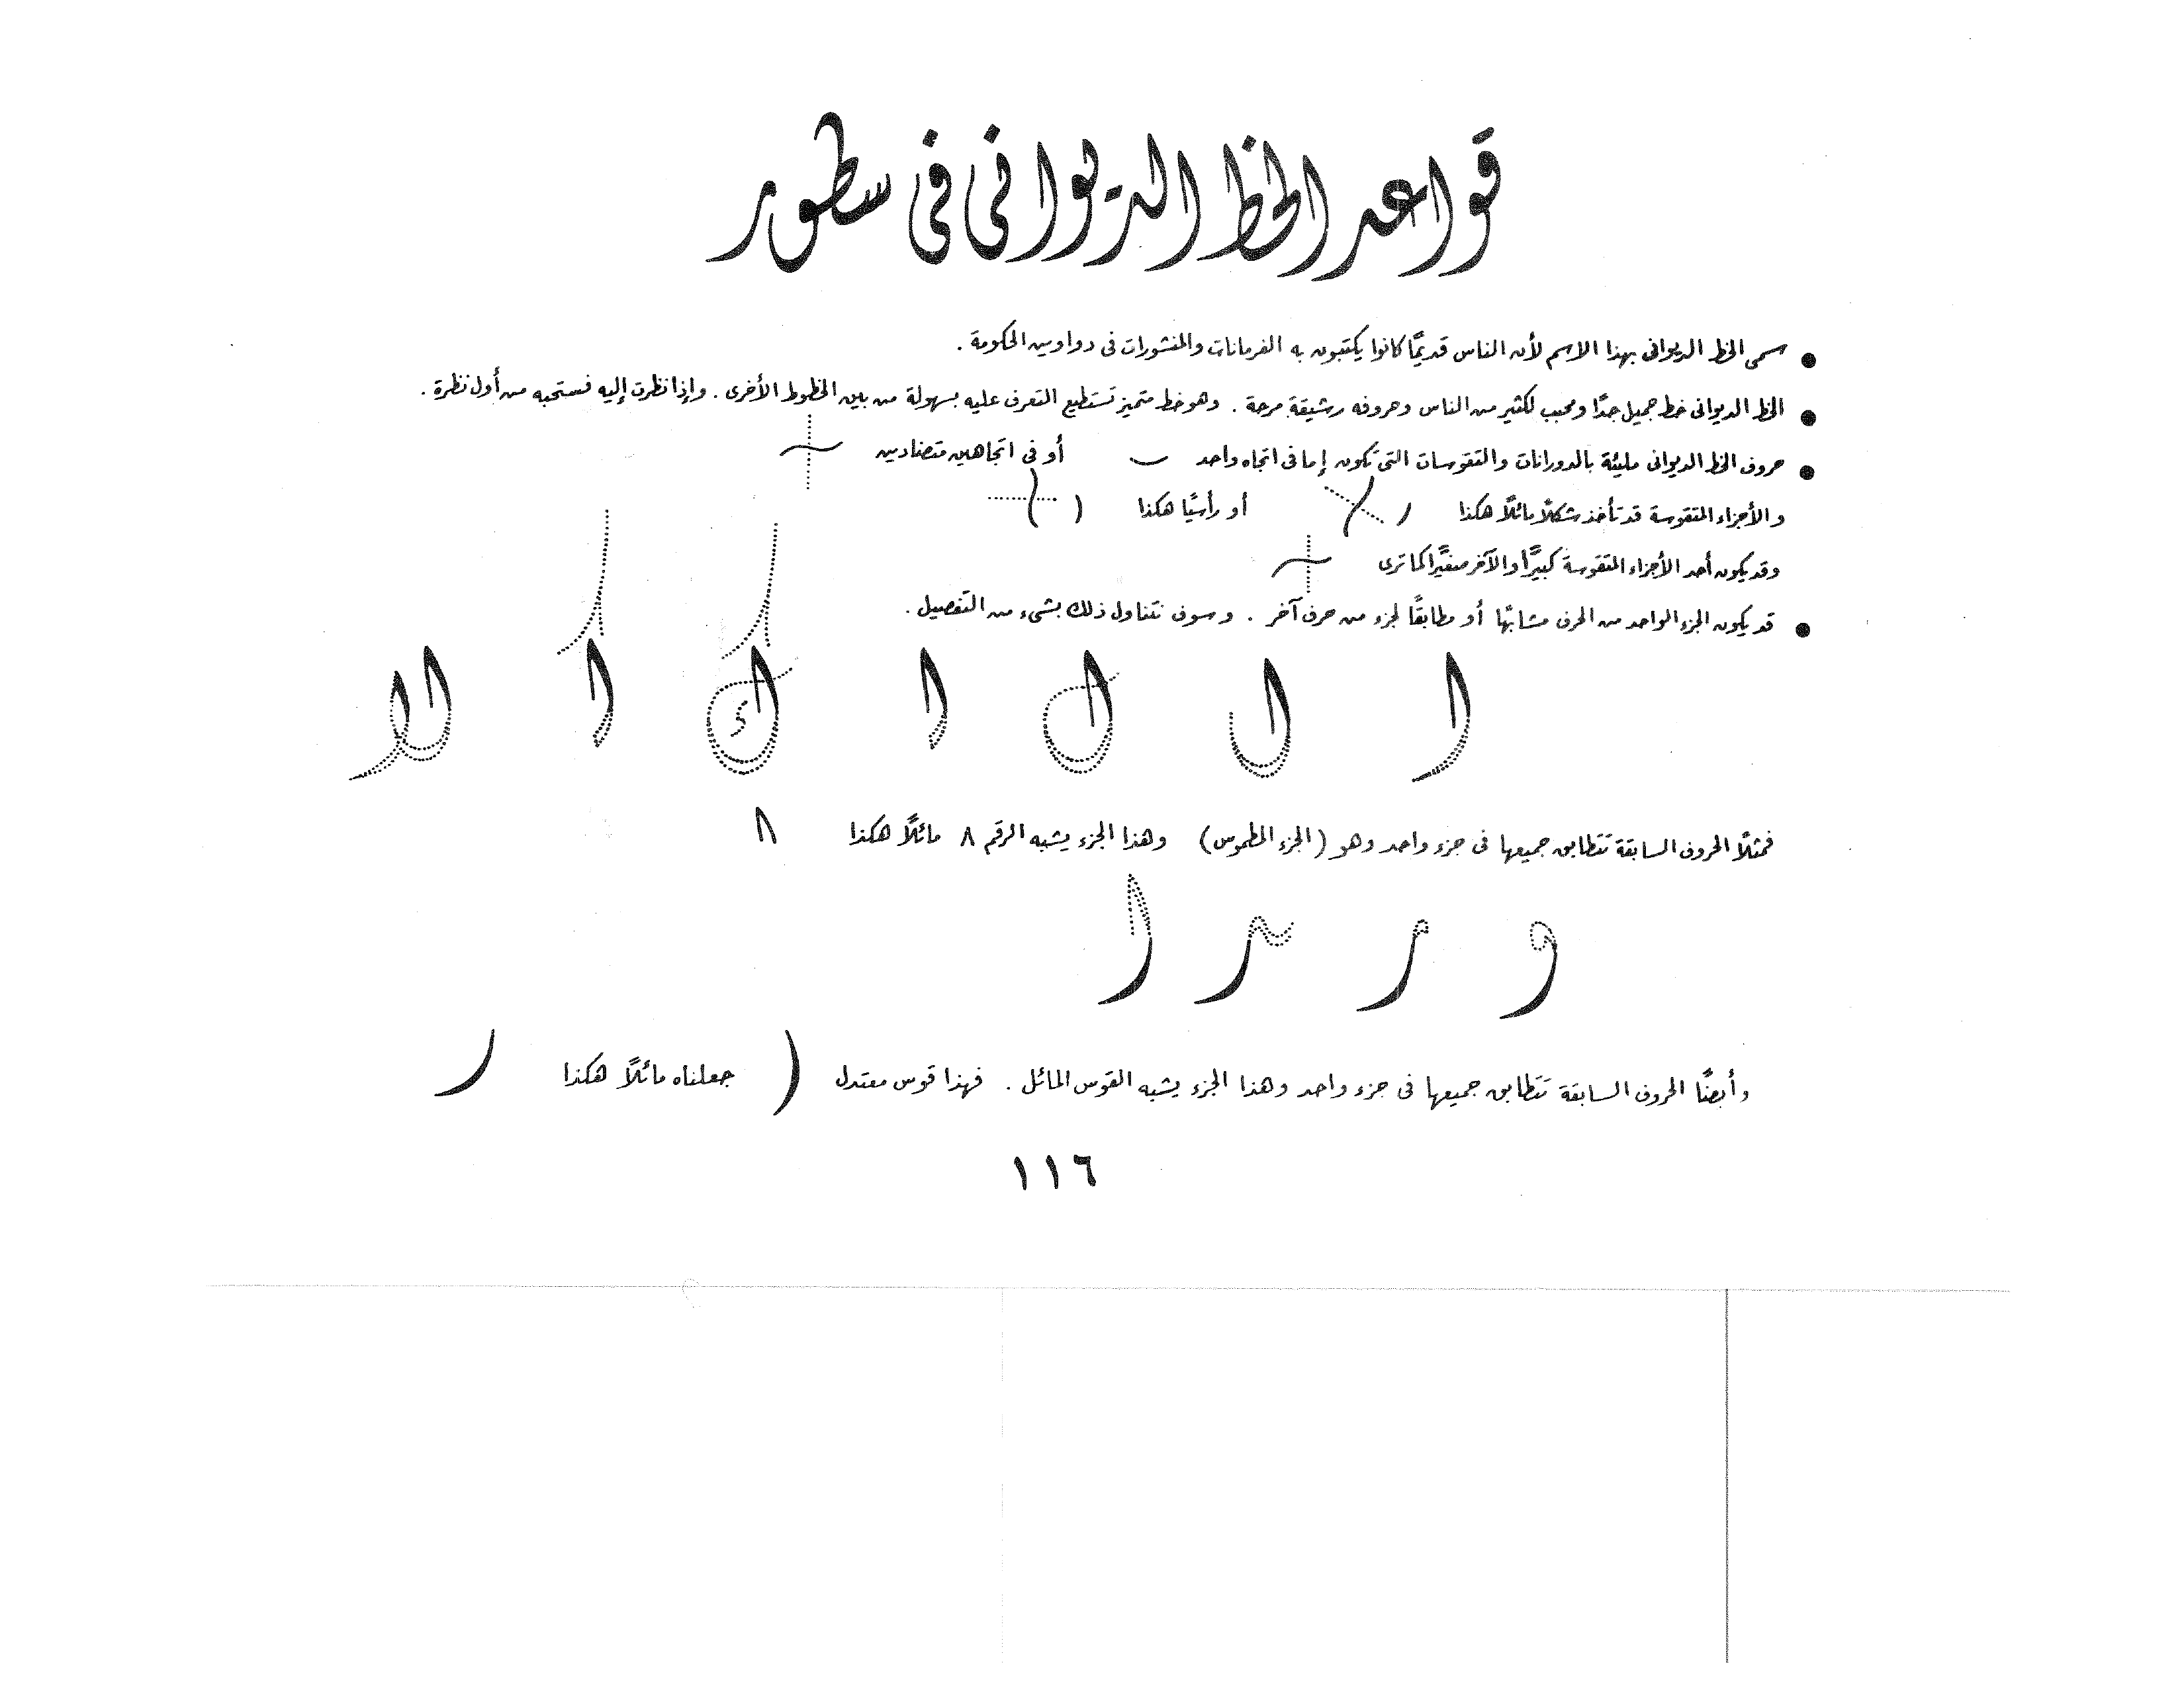 قواعد الخط الديوانى فى سطور
● سمى الخط الديوانى بهذا الاسم لأن الناس قديمًا كانوا يكتبون به الفرمانات والمنشورات فى دواوين الحكومة .
● الخط الديوانى خط جميل جدًا ومحبب لكثير من الناس وحروفه رشيقة مرحة . وهو خط متميز تستطيع التعرف عليه بسهولة من بين الخطوط الأخرى . وإذا نظرت إليه فستحبه من أول نظرة .
● حروف الخط الديوانى مليئة بالدورانات والتقوسات التى تكون إما فى اتجاه واحد أو فى اتجاهين متضادين
والأجزاء المتقوسة قد تأخذ شكلًا مائلًا هكذا أو رأسيًا هكذا
وقد يكون أحد الأجزاء المتقوسة كبيرًا والآخر صغيرًا كما ترى
● قد يكون الجزء الواحد من الحرف مشابهًا أو مطابقًا لجزء من حرف آخر . وسوف نتناول ذلك بشىء من التفصيل .
فمثلًا الحروف السابقة تتطابق جميعها فى جزء واحد وهو (الجزء المطموس) وهذا الجزء يشبه الرقم ٨ مائلًا هكذا
وأيضًا الحروف السابقة تتطابق جميعها فى جزء واحد وهذا الجزء يشبه القوس المائل . فهذا قوس معتدل ( جعلناه مائلًا هكذا
١١٦